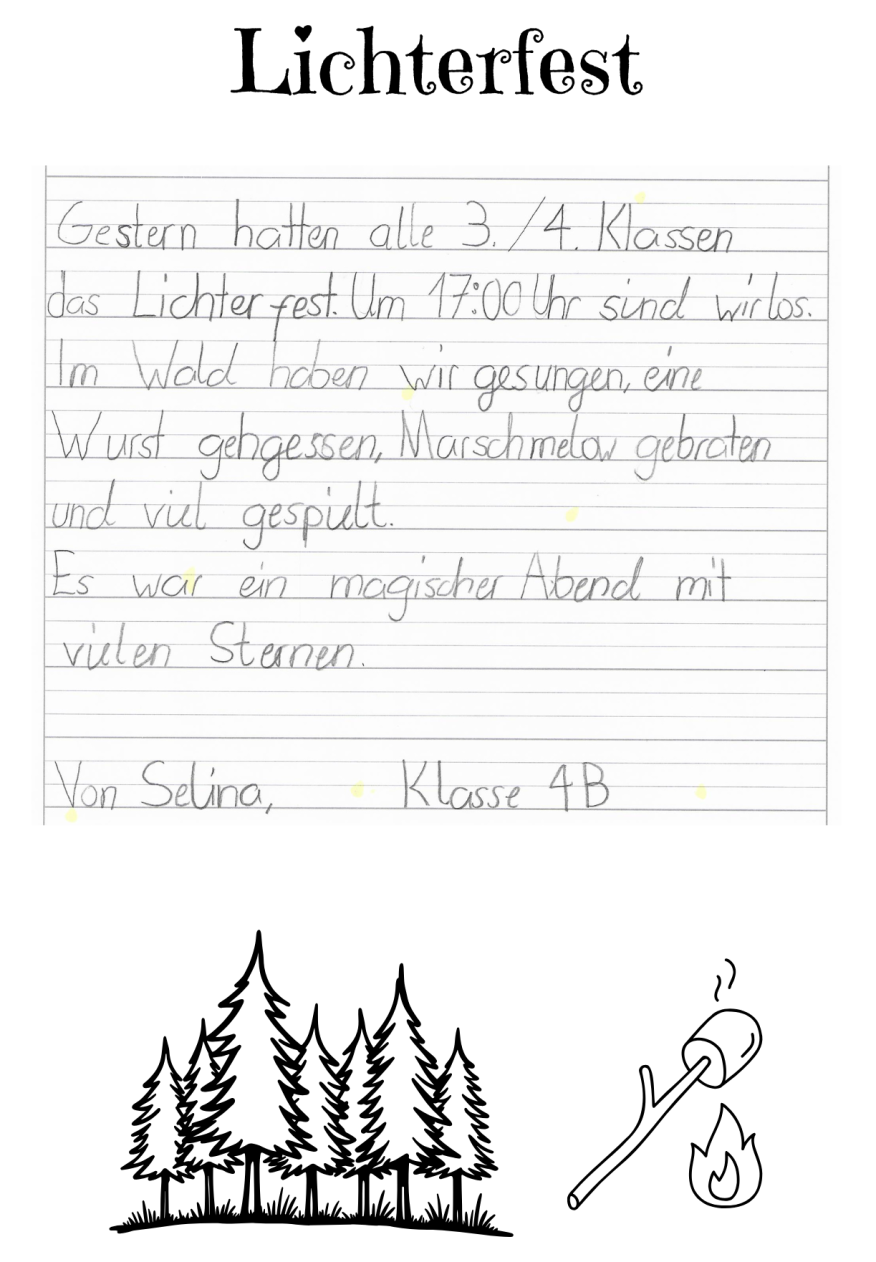 Lichterfest
Gestern hatten alle 3./4. Klassen
das Lichterfest. Um 17:00 Uhr sind wir los.
Im Wald haben wir gesungen, eine
Wurst gehgessen, Marschmelow gebraten
und viel gespielt.
Es war ein magischer Abend mit
vielen Sternen.
Von Selina, Klasse 4B